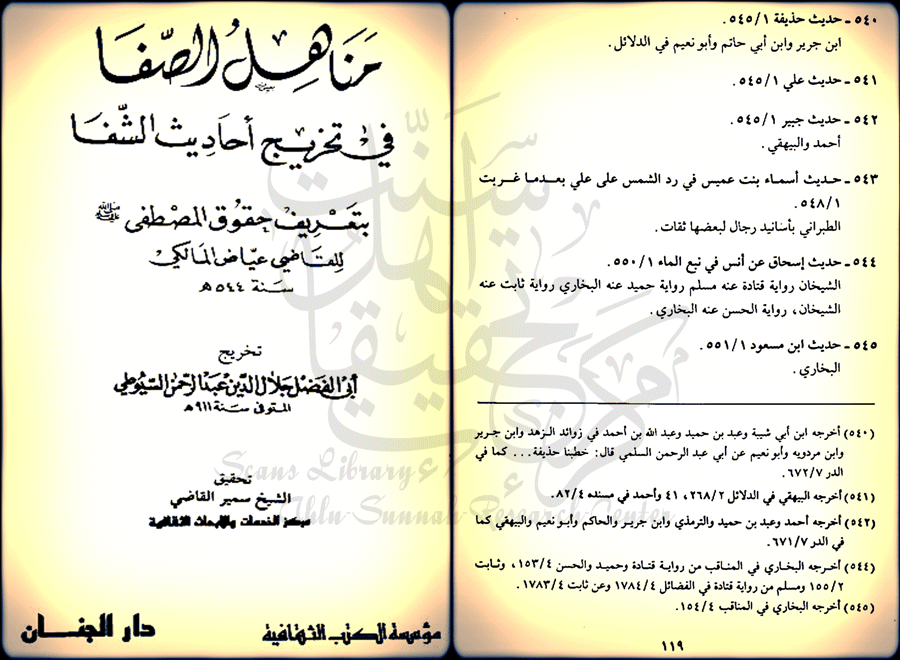 مَنَاهِلُ الصَّفَا
في تخريج أحَاديث الشِّفَا
بتَعْريف حقُوق المصْطَفى ﷺ
للقاضي عيَاض المالكي
سنة ٥٤٤هـ
تخريج
أبي الفَضل جَلال الدّين عَبد الرّحمن السّيوطي
المتوفى سنة ٩١١هـ
تحقيق
الشيخ سمير القاضي
مركز الخدمات والأبحاث الثقافية
مؤسسة الكتب الثقافية
دار الجنان
٥٤٠ ـ حديث حذيفة ١/٥٤٥.
ابن جرير وابن أبي حاتم وأبو نعيم في الدلائل.
٥٤١ ـ حديث علي ١/٥٤٥.
٥٤٢ ـ حديث جبير ١/٥٤٥.
أحمد والبيهقي.
٥٤٣ ـ حديث أسماء بنت عميس في رد الشمس على علي بعدما غربت
١/٥٤٨.
الطبراني بأسانيد رجال لبعضها ثقات.
٥٤٤ ـ حديث إسحاق عن أنس في نبع الماء ١/٥٥٠.
الشيخان رواية قتادة عنه مسلم رواية حميد عنه البخاري رواية ثابت عنه
الشيخان، رواية الحسن عنه البخاري.
٥٤٥ ـ حديث ابن مسعود ١/٥٥١.
البخاري.
(٥٤٠) أخرجه ابن أبي شيبة وعبد بن حميد وعبد الله بن أحمد في زوائد الزهد وابن جرير
وابن مردويه وأبو نعيم عن أبي عبد الرحمن السلمي قال: خطبنا حذيفة... كما في
الدر ٧/٦٧٢.
(٥٤١) أخرجه البيهقي في الدلائل ٢/٢٦٨، ٤١ وأحمد في مسنده ٤/٨٢.
(٥٤٢) أخرجه أحمد وعبد بن حميد والترمذي وابن جرير والحاكم وأبو نعيم والبيهقي كما
في الدر ٧/٦٧١.
(٥٤٤) أخرجه البخاري في المناقب من رواية قتادة وحميد والحسن ٤/١٥٣، وثابت
٢/١٥٥ ومسلم من رواية قتادة في الفضائل ٤/١٧٨٤ وعن ثابت ٤/١٧٨٣.
(٥٤٥) أخرجه البخاري في المناقب ٤/١٥٤.
١١٩
Scans Library
Ahlu-Sunnah Research Center